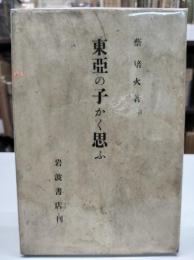 蔡培火著
東亞の子かく思ふ
岩波書店刊